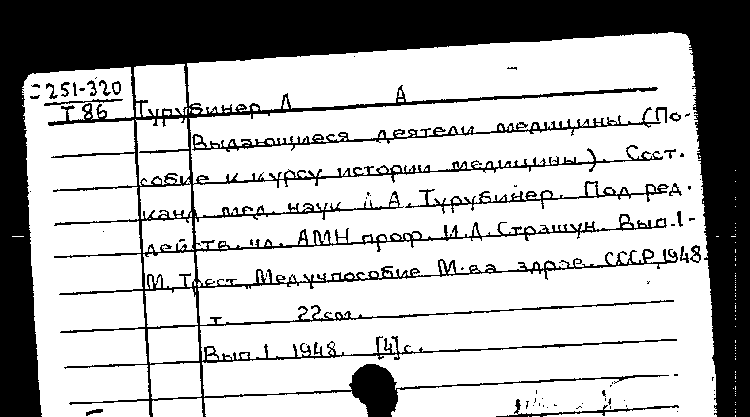 251-320
Т 86
Турубинер, Л А
Выдающиеся деятели медицины. (По-
собие к курсу истории медицины). Сост.
канд. мед. наук Л.А. Турубинер. Под ред.
действ. чл. АМН проф. И.Д. Страшун. Вып.1-
М., Трест Медучпособие М-ва здрав. СССР, 1948.
т. 22см.
Вып.1. 1948. [4]с.